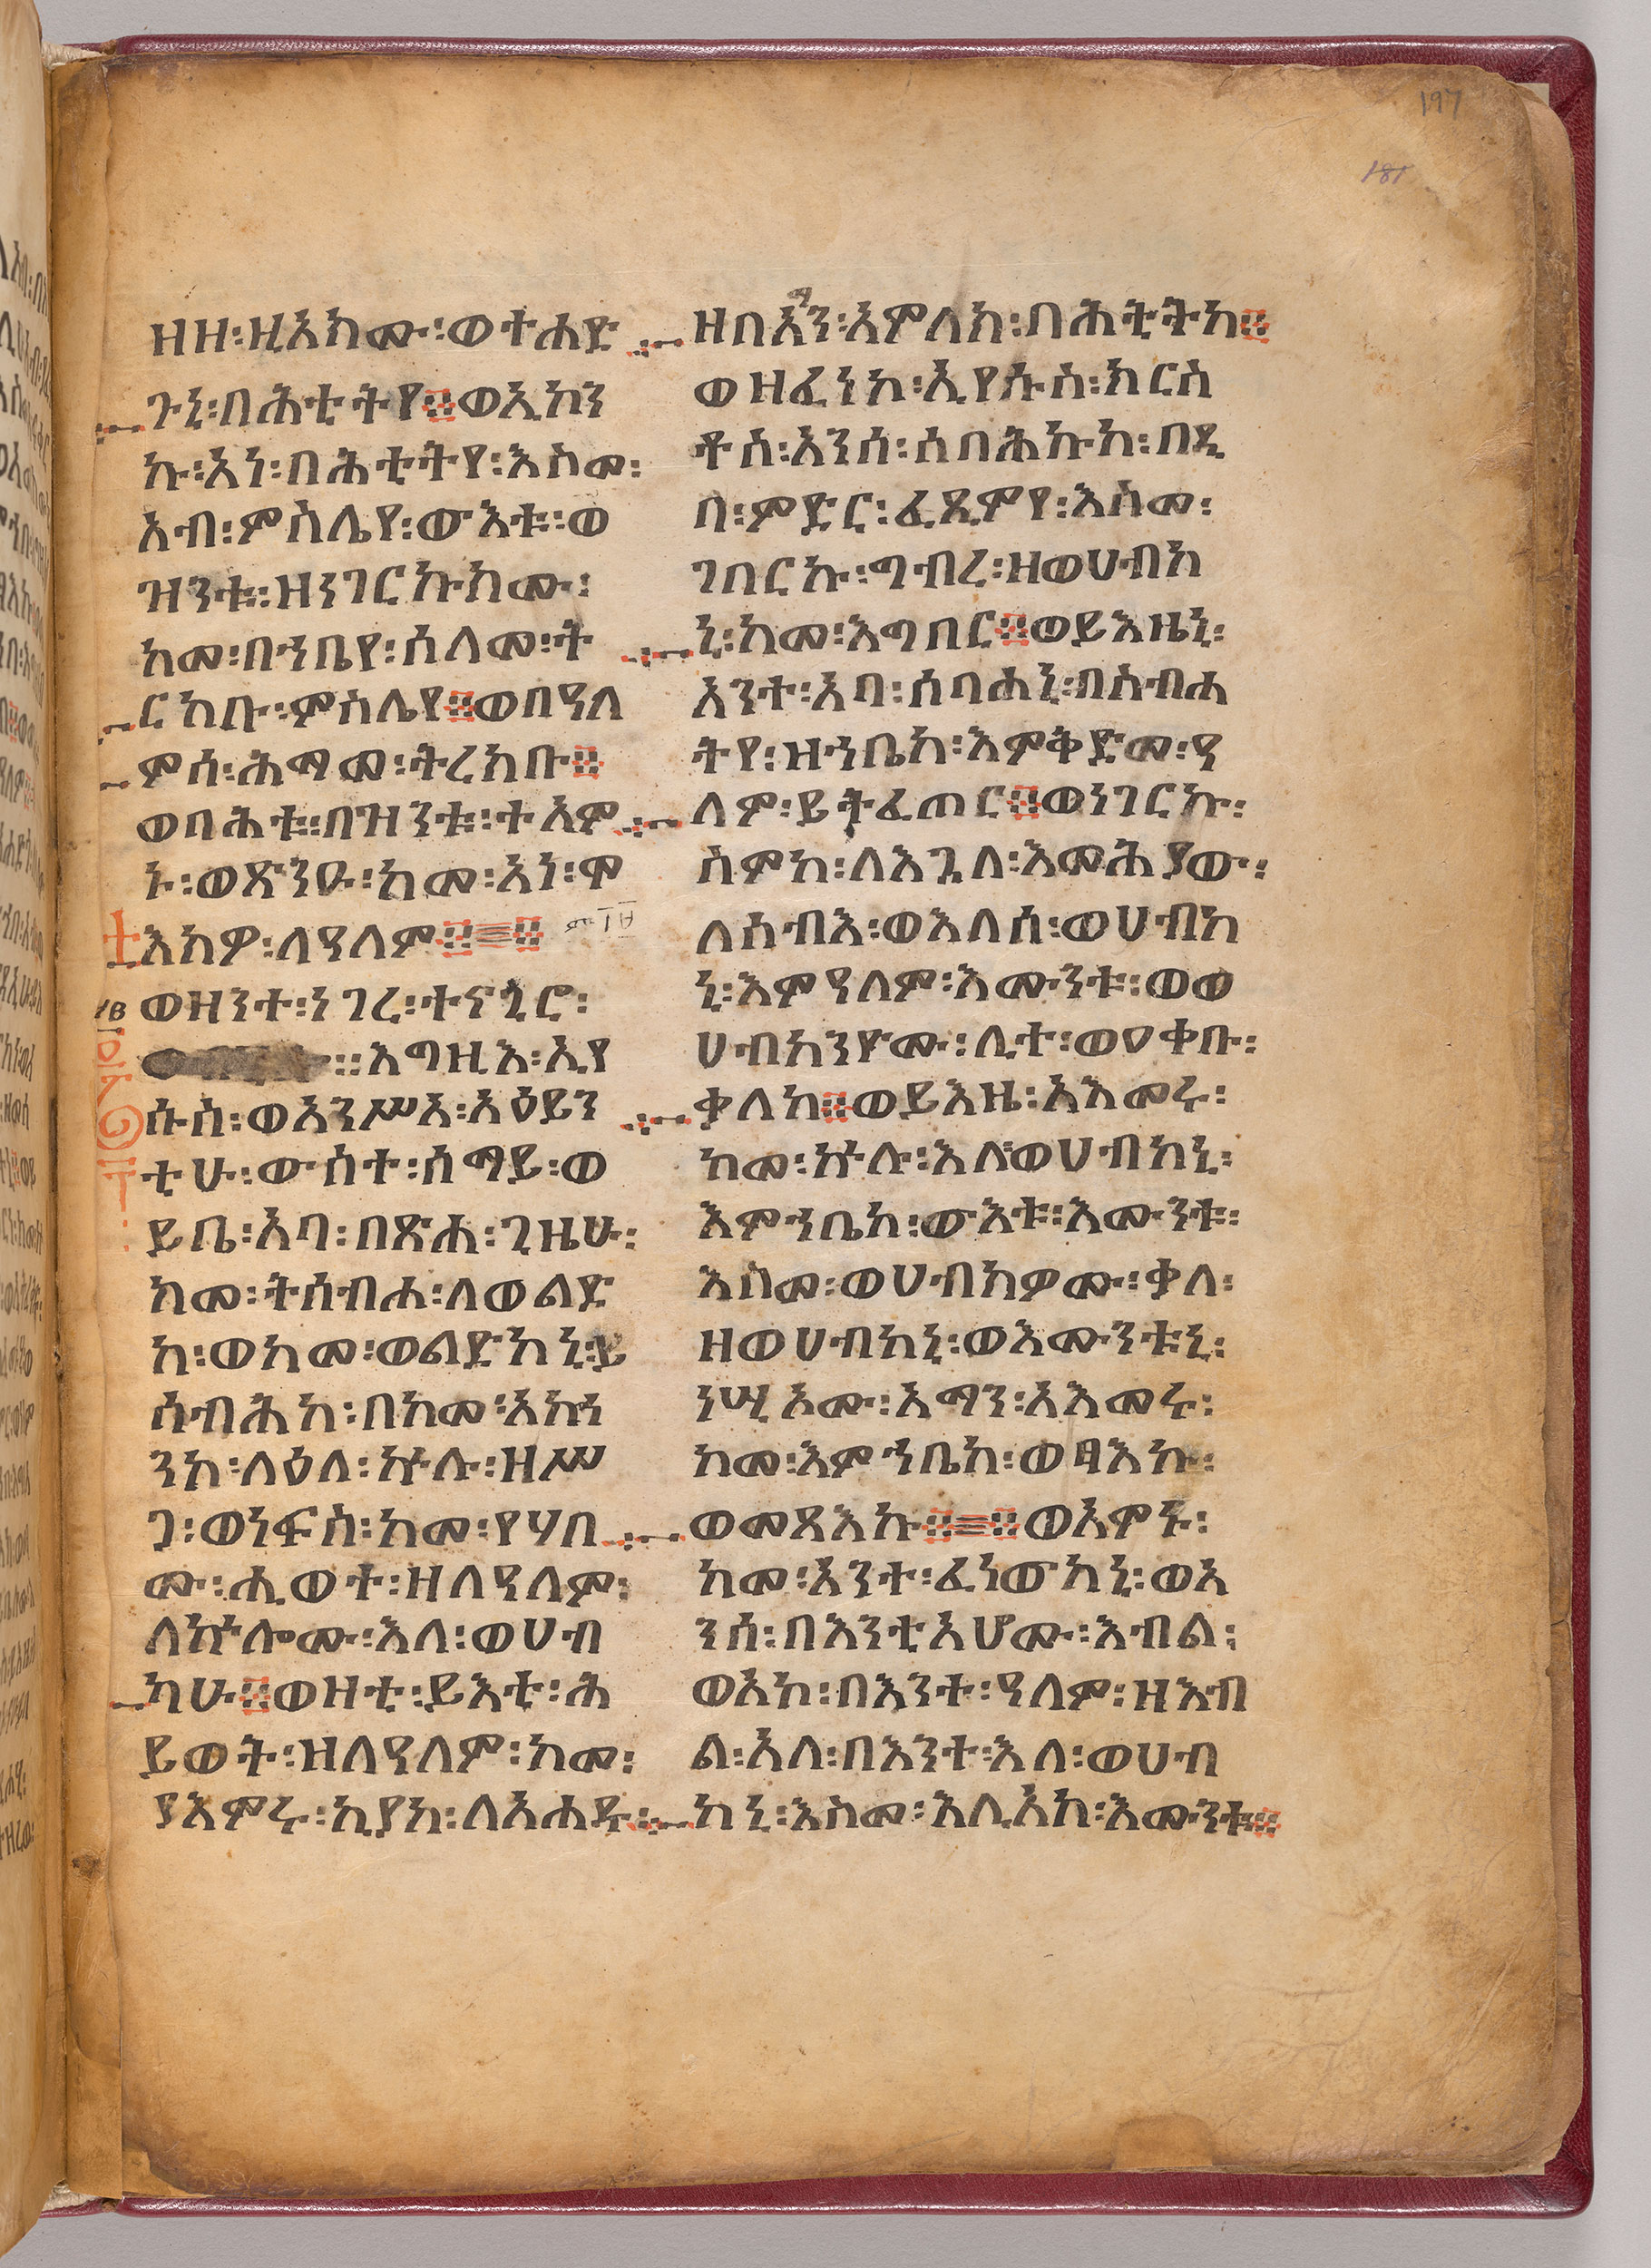 197
181
ዘዘ፡ዚአክሙ፡ወተሐድ
ጉኒ፡በሕቲትየ፨ወኢኮን
ኩ፡አነ፡በሕቲትየ፡እስመ፡
አብ፡ምስሌየ፡ውእቱ፡ወ
ዝንቱ፡ዘነገርኩክሙ፡
ከመ፡በኀቤየ፡ሰላመ፡ት
ርከቡ፡ምስሌየ፨ወበዓለ
ምሰ፡ሕማመ፡ትረከቡ፨
ወባሕቱ፡በዝንቱ፡ተአም
ኑ፡ወጽንዑ፡ከመ፡አነ፡ሞ
እክዎ፡ለዓለም፨፨
ወዘንተ፡ነገረ፡ተናጊሮ፡
፡፡እግዚእ፡ኢየ
ሱስ፡ወአንሥአ፡አዕይን
ቲሁ፡ውስተ፡ሰማይ፡ወ
ይቤ፡አባ፡በጽሐ፡ጊዜሁ፡
ከመ፡ትሰብሐ፡ለወልድ
ከ፡ወከመ፡ወልድከኒ፡ይ
ሰብሕከ፡በከመ፡አኰነ
ንከ፡ለዕለ፡ኵሉ፡ዘሥ
ጋ፡ወነፍስ፡ከመ፡የሃበ
ሙ፡ሒወተ፡ዘለዓለም፡
ለኵሎሙ፡እለ፡ወሀብ
ካሁ፨ወዛቲ፡ይእቲ፡ሕ
ይወት፡ዘለዓለም፡ከመ፡
ያእምሩ፡ኪያከ፡ለአሐዱ፡
ዘበአማን፡አምላከ፡በሕቲትከ፨
ወዘፈነኮ፡ኢየሱስ፡ክርስ
ቶስ፡አንሰ፡ሰባሕኩከ፡በዲ
በ፡ምድር፡ፈጺምየ፡እስመ፡
ገበርኩ፡ግብረ፡ዘወሀብከ
ኒ፡ከመ፡እግበር፨ወይእዜኒ፡
አንተ፡አባ፡ሰባሐኒ፡በስብሐ
ትየ፡ዘኀቤከ፡እምቅድመ፡ዓ
ለም፡ይትፈጠር፨ወነገርኩ፡
ስምከ፡ለእጓለ፡እመሕያው፡
ለሰብእ፡ወእለሰ፡ወሀብከ
ኒ፡እምዓለም፡እሙንቱ፡ወወ
ሀብከንዮሙ፡ሊተ፡ወዐቀቡ፡
ቃለከ፨ወይእዜ፡አእመሩ፡
ከመ፡ኵሉ፡እለ፡ወሀብከኒ፡
እምኀቤከ፡ውእቱ፡እሙንቱ፡
እስመ፡ወሀብክዎሙ፡ቃለ፡
ዘወሀብከኒ፡ወእሙንቱኒ፡
ነሢኦሙ፡አማን፡አእመሩ፡
ከመ፡እምኀቤከ፡ወፃእኩ፡
ወመጻእኩ፨፨ወአምኑ፡
ከመ፡አንተ፡ፈነውከኒ፡ወአ
ንሰ፡በእንቲአሆሙ፡እብል፡
ወአኮ፡በእንተ፡ዓለም፡ዘእብ
ል፡አላ፡በእንተ፡እለ፡ወሀብ
ከኒ፡እስመ፡እሊአከ፡እሙንቱ፨